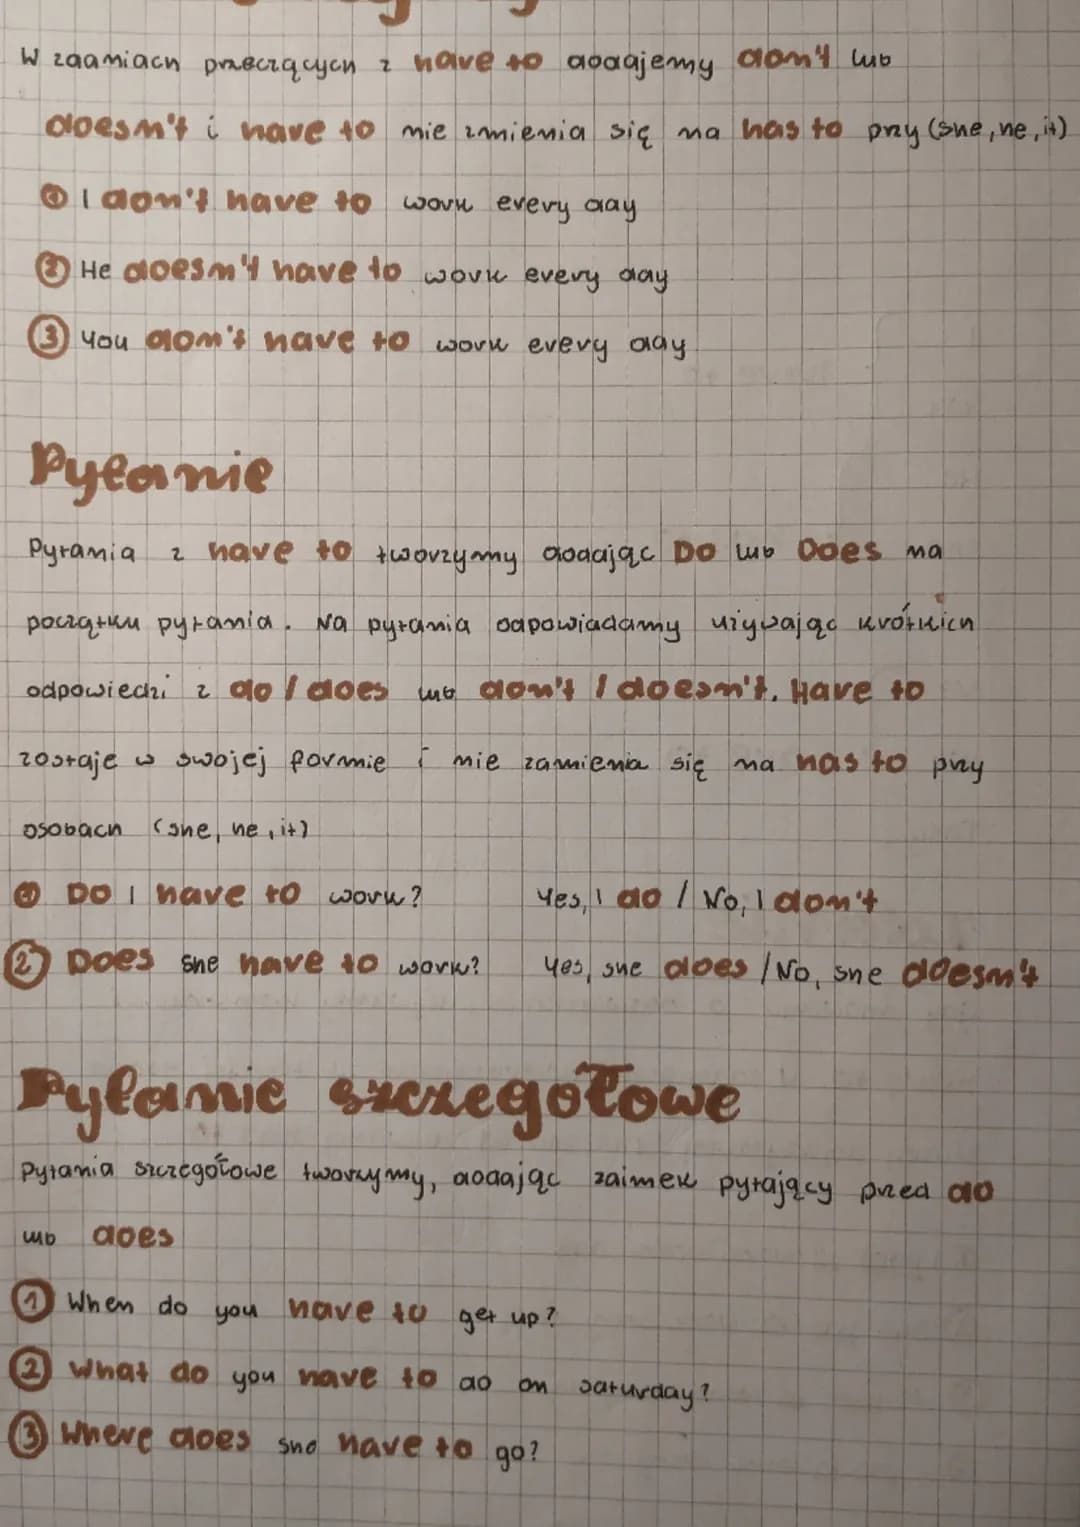 W zdaniach przeczących z have to dodajemy don't lub
doesn't i have to nie zmienia się na has to przy (she, he, it)
① I don't have to work every day
② He doesn't have to work every day
③ You don't have to work every day
Pytanie
Pytania z have to tworzymy dodając Do lub Does na
początku pytania. Na pytania odpowiadamy używając krótkich
odpowiedzi z do / does lub don't / doesn't. Have to
zostaje w swojej formie i nie zamienia się na has to przy
osobach (she, he, it)
① Do I have to work? Yes, I do / No, I don't
② Does she have to work? Yes, she does / No, she doesn't
Pytanie szczegółowe
Pytania szczegółowe tworzymy, dodając zaimek pytający przed do
lub does
① When do you have to get up?
② What do you have to do on saturday?
③ Where does she have to go?